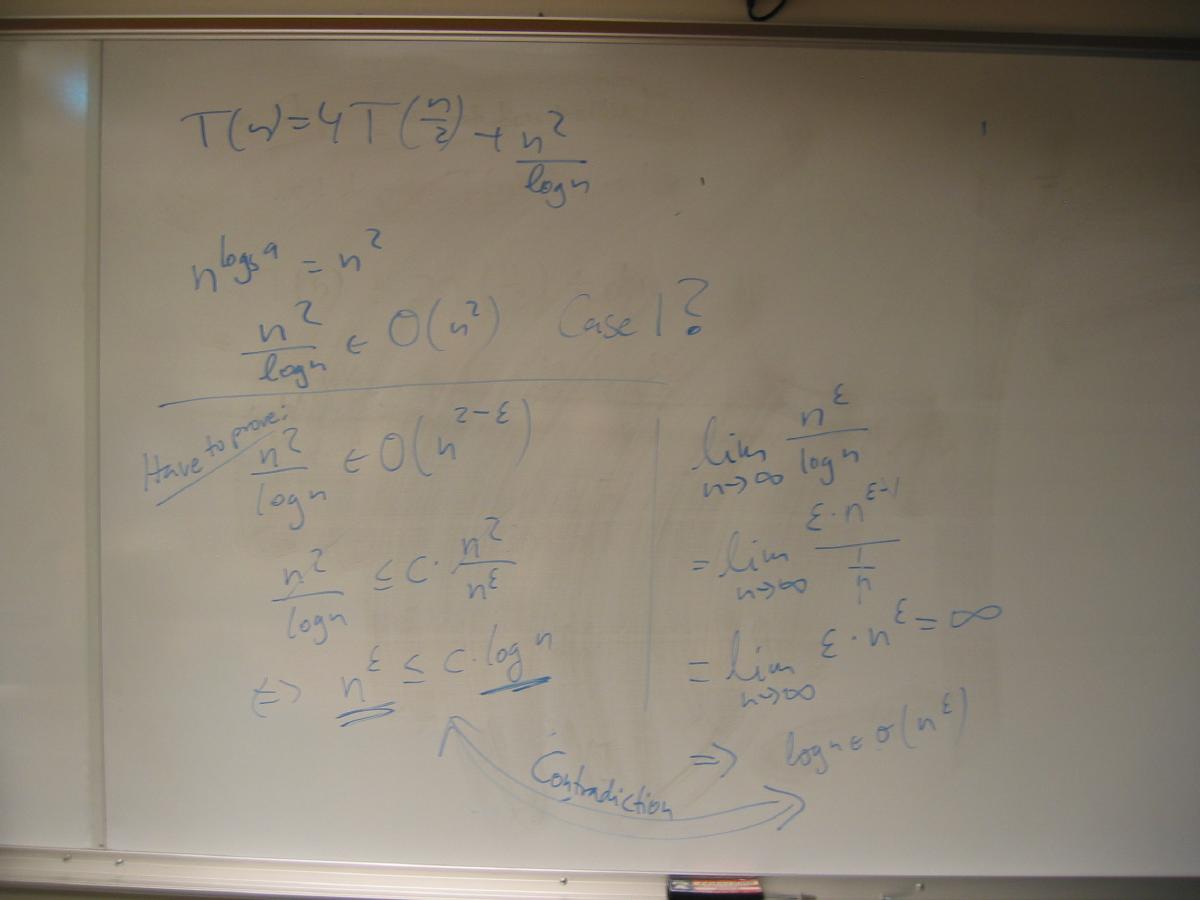 T(n) = 4T(n/2) + n²/log n
n^(log_b a) = n²
n²/log n ∈ O(n²) Case 1?
Have to prove:
n²/log n ∈ O(n^(2-ε))
n²/log n ≤ c · n²/n^ε
⇔ n^ε ≤ c · log n
lim n→∞ n^ε/log n
= lim n→∞ ε · n^(ε-1) / (1/n)
= lim n→∞ ε · n^ε = ∞
⇒ log n ∈ o(n^ε)
Contradiction